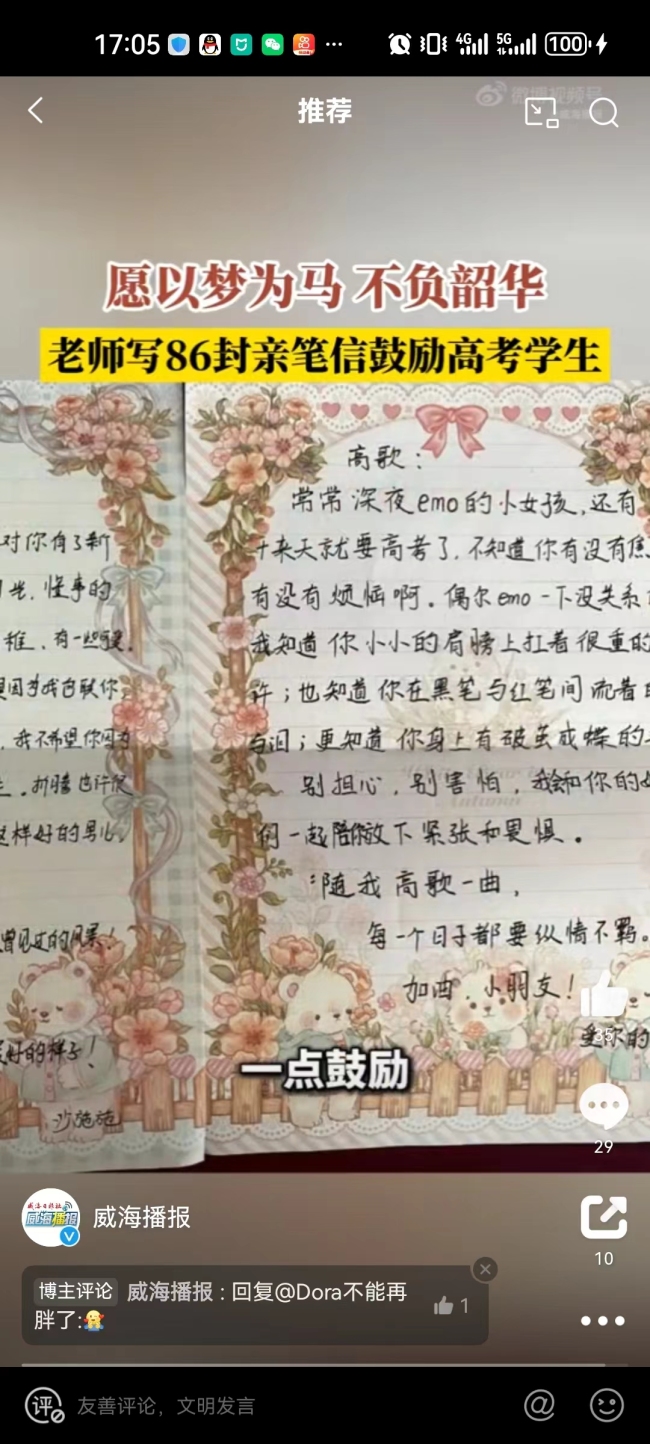 17:05
4G
5G
100
推荐
微博视频号
愿以梦为马 不负韶华
老师写86封亲笔信鼓励高考学生
高歌：
常常深夜emo的小女孩,还有
十来天就要高考了.不知道你有没有焦
有没有烦恼啊。偶尔emo一下没关系
我知道你小小的肩膀上扛着很重的
许；也知道你在黑笔与红笔间流着
与泪；更知道你身上有破茧成蝶的
别担心,别害怕,我会和你的
们一起陪你放下紧张和畏惧。
随我高歌一曲,
每一个日子都要纵情不羁。
加西.小朋友!
爱你的
对你有了新
怪事的
框,有一些
因为我台联你
我不希望你因为
这样好的男儿
曾见过的风景!
最好的样子!
沙施施
一点鼓励
35
29
10
威海播报
威海播报
博主评论 威海播报：回复@Dora不能再
胖了:
1
评
友善评论，文明发言